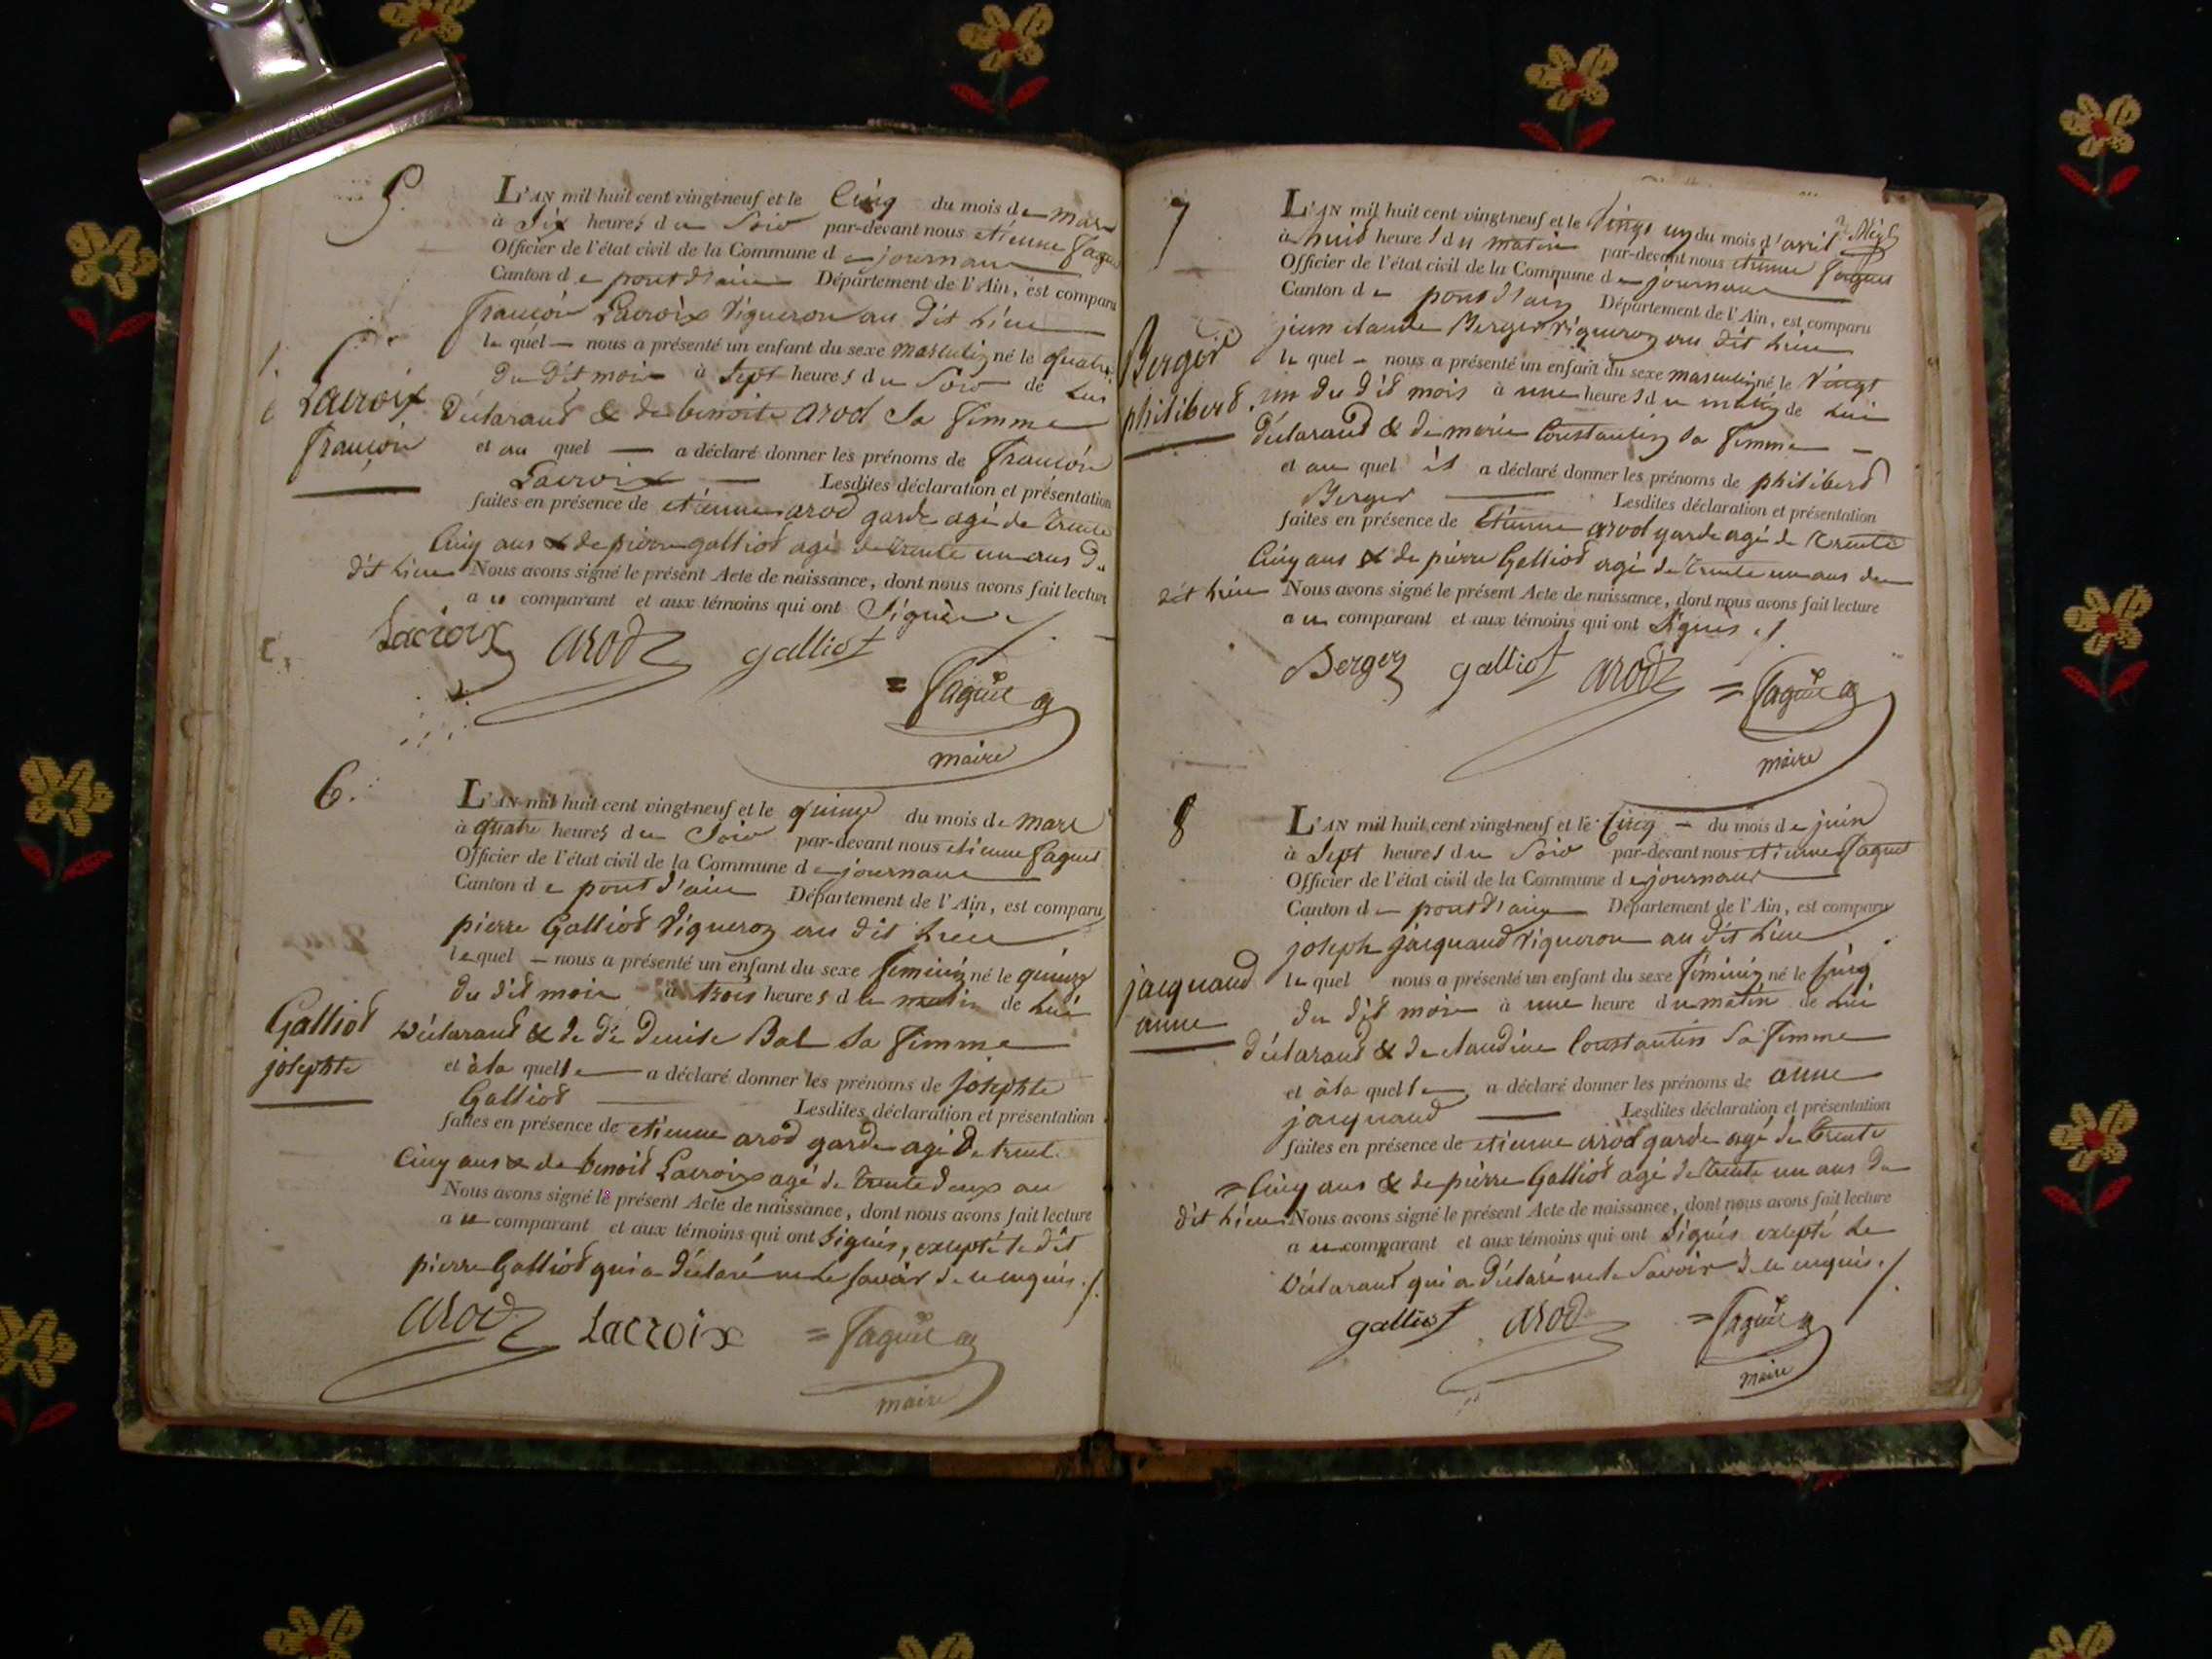 5.
L'AN mil huit cent vingt-neuf et le Cinq du mois de mars
à Six heures du Soir par-devant nous etienne faguet
Officier de l'état civil de la Commune de journans
Canton de pont d'ain Département de l'Ain, est comparu
françois Lacroix Vigneron au dit Lieu
le quel — nous a présenté un enfant du sexe masculin né le quatre
du dit mois à Sept heures du Soir de Lui
Lacroix
françois
déclarant & de benoite arod Sa femme
et au quel — a déclaré donner les prénoms de françois
Lacroix — Lesdites déclaration et présentation
faites en présence de etienne arod garde agé de trente
Cinq ans & de pierre galliot agé de trente un ans du
dit Lieu Nous avons signé le présent Acte de naissance, dont nous avons fait lecture
au comparant et aux témoins qui ont Signés ./.
Lacroix arod galliot
= faguet
maire
6.
L'AN mil huit cent vingt-neuf et le quinze du mois de mars
à quatre heures du Soir par-devant nous etienne faguet
Officier de l'état civil de la Commune de journans
Canton de pont d'ain Département de l'Ain, est comparu
pierre Galliot Vigneron au dit Lieu
lequel — nous a présenté un enfant du sexe feminin né le quinze
du dit mois à trois heures du matin de Lui
Galliot
josephte
Déclarant & de de Denise Bal Sa femme
et à la quelle — a déclaré donner les prénoms de josephte
Galliot — Lesdites déclaration et présentation
faites en présence de etienne arod garde agé De trente
Cinq ans & de benoit Lacroix agé de trente deux an
Nous avons signé le présent Acte de naissance, dont nous avons fait lecture
au comparant et aux témoins qui ont Signés, excepté le dit
pierre Galliot qui a déclaré ne le Savoir de ce enquis ./.
arod Lacroix = faguet
maire
7
L'AN mil huit cent vingt-neuf et le Vingt un du mois d'avril
à huit heures du matin par-devant nous etienne faguet
Officier de l'état civil de la Commune de journans
Canton de pont d'ain Département de l'Ain, est comparu
jean claude Berger Vigneron au dit Lieu
le quel — nous a présenté un enfant du sexe masculin né le Vingt
Berger
philibert
un du dit mois à une heures du matin de Lui
déclarant & de marie Constantin Sa femme —
et au quel il a déclaré donner les prénoms de philibert
Berger — Lesdites déclaration et présentation
faites en présence de Etienne arod garde agé de trente
Cinq ans & de pierre Galliot agé de trente un ans du
dit Lieu Nous avons signé le présent Acte de naissance, dont nous avons fait lecture
au comparant et aux témoins qui ont Signés ./.
Berger galliot arod = faguet
maire
8
L'AN mil huit cent vingt-neuf et le Cinq — du mois de juin
à Sept heures du Soir par-devant nous etienne faguet
Officier de l'état civil de la Commune de journans
Canton de pont d'ain Département de l'Ain, est comparu
joseph jacquand Vigneron au dit Lieu
le quel nous a présenté un enfant du sexe féminin né le Cinq
jacquand
anne
du dit mois à une heure du matin de Lui
déclarant & de claudine Constantin Sa femme
et à la quelle a déclaré donner les prénoms de anne
jacquand — Lesdites déclaration et présentation
faites en présence de etienne arod garde agé de trente
= Cinq ans & de pierre Galliot agé de trente un ans du
dit Lieu Nous avons signé le présent Acte de naissance, dont nous avons fait lecture
au comparant et aux témoins qui ont Signés excepté Le
Déclarant qui a déclaré ne le Savoir de ce enquis ./.
galliot arod = faguet
maire